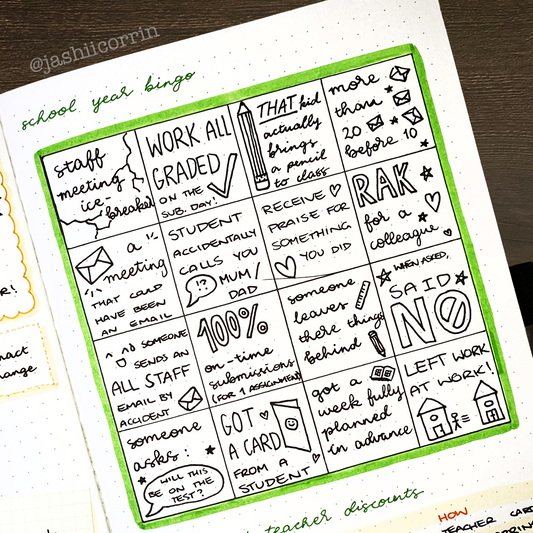 @jashiicorrin
school year bingo
staff
meeting
ice-
breaker
WORK ALL
GRADED
ON THE
SUB. DAY!
THAT kid
actually
brings
a pencil
to class
more
than
20
before 10
a
meeting
THAT COULD
HAVE BEEN
AN EMAIL
STUDENT
ACCIDENTALLY
CALLS YOU
!? MUM/
DAD
RECEIVE
PRAISE FOR
SOMETHING
YOU DID
RAK
for a
colleague
SOMEONE
SENDS AN
ALL STAFF
EMAIL BY
ACCIDENT
100%
on-time
submissions
(FOR 1 ASSIGNMENT)
someone
leaves
there things
behind
WHEN ASKED,
SAID
NO
someone
asks:
WILL THIS
BE ON THE
TEST?
GOT
A CARD
FROM A
STUDENT
got a
week fully
planned
in advance
LEFT WORK
AT WORK!
R!
act
hange
teacher discounts
HOW
TEACHER CARD